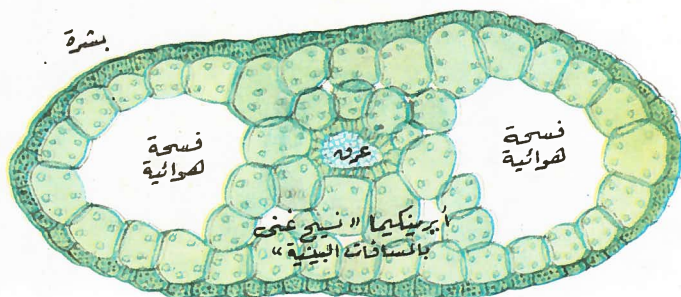 بشرة
فسحة
هوائية
فسحة
هوائية
عرق
أيرينكيما « نسيج غني
بالمسافات البينية »